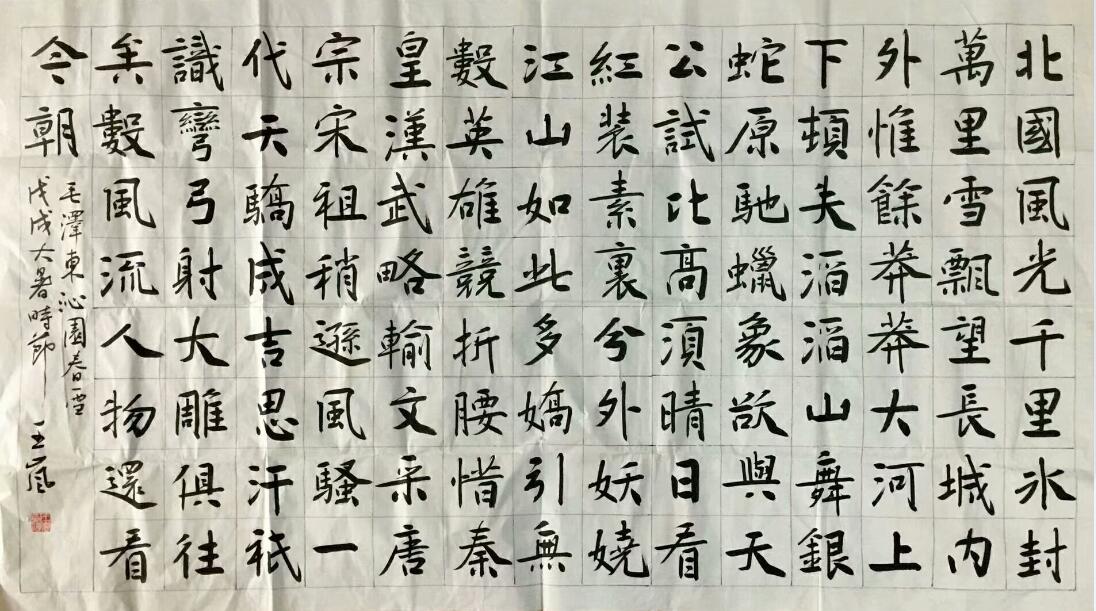 北國風光千里冰封
萬里雪飄望長城内
外惟餘莽莽大河上
下頓失滔滔山舞銀
蛇原馳蠟象欲與天
公試比高須晴日看
紅装素裏兮外妖嬈
江山如此多嬌引無
數英雄競折腰惜秦
皇漢武略輸文采唐
宗宋祖稍遜風騷一
代天驕成吉思汗祇
識彎弓射大雕俱往
矣數風流人物還看
今朝
毛澤東沁園春雪
戊戌大暑時節 王嵐